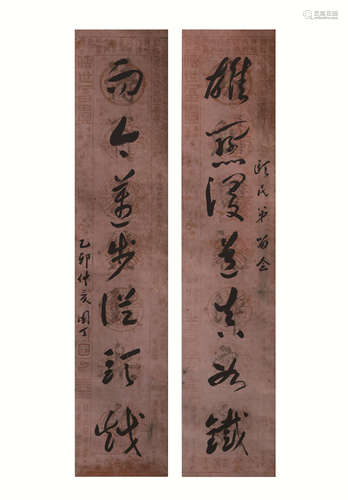 雄關漫道真如鐵
頤民弟留念
而今邁步從頭越
乙卯仲亥国丁